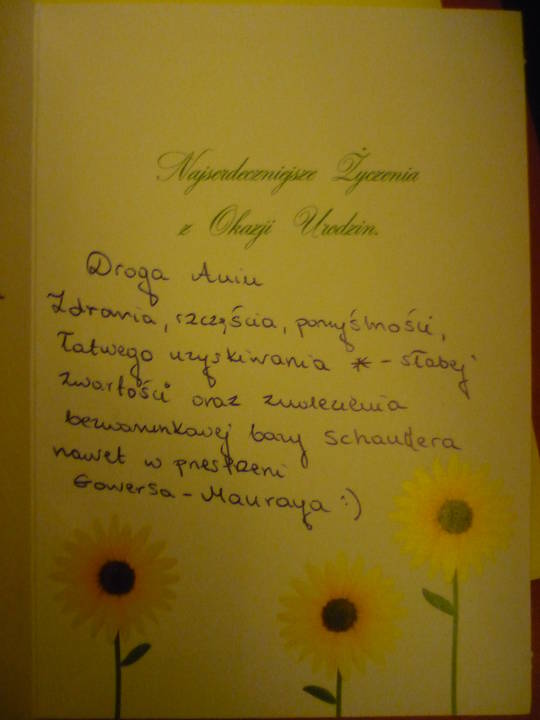 Najserdeczniejsze Życzenia
z Okazji Urodzin.
Droga Aniu
Zdrowia, szczęścia, pomyślności,
łatwego uzyskiwania * - słabej
zwartości oraz znalezienia
bezwarunkowej bazy Schaudera
nawet w przestrzeni
Gowersa - Mauraya :)